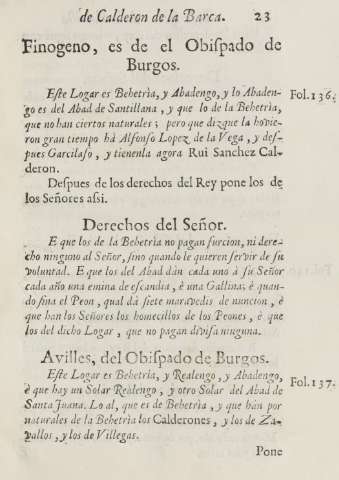 de Calderon de la Barca. 23
Finogeno, es de el Obiſpado de
Burgos.
Eſte Logar es Behetrìa, y Abadengo, y lo Abaden- Fol.136.
go es del Abad de Santillana, y que lo de la Behetrìa,
que no han ciertos naturales; pero que dizque la hovie-
ron gran tiempo hà Alfonſo Lopez de la Vega, y deſ-
pues Garcilaſo, y tienenla agora Rui Sanchez Cal-
deron.
Deſpues de los derechos del Rey pone los de
los Señores aſsi.
Derechos del Señor.
E que los de la Behetrìa no pagan furcion, ni dere-
cho ninguno al Señor, ſino quando le quieren ſervir de ſu
voluntad. E que los del Abad dàn cada uno à ſu Señor
cada año una emina de eſcandia, è una Gallina; è quan-
do fina el Peon, qual dà ſiete maravedis de nuncion, è
que han los Señores los homecillos de los Peones, è que
los del dicho Logar, que no pagan diviſa ninguna.
Avilles, del Obiſpado de Burgos.
Eſte Logar es Behetrìa, y Realengo, y Abadengo, Fol.137.
è que hay un Solar Realengo, y otro Solar del Abad de
Santa Juana. Lo al, que es de Behetrìa, y que han por
naturales de la Behetrìa los Calderones, y los de Za-
vallos, y los de Villegas.
Pone